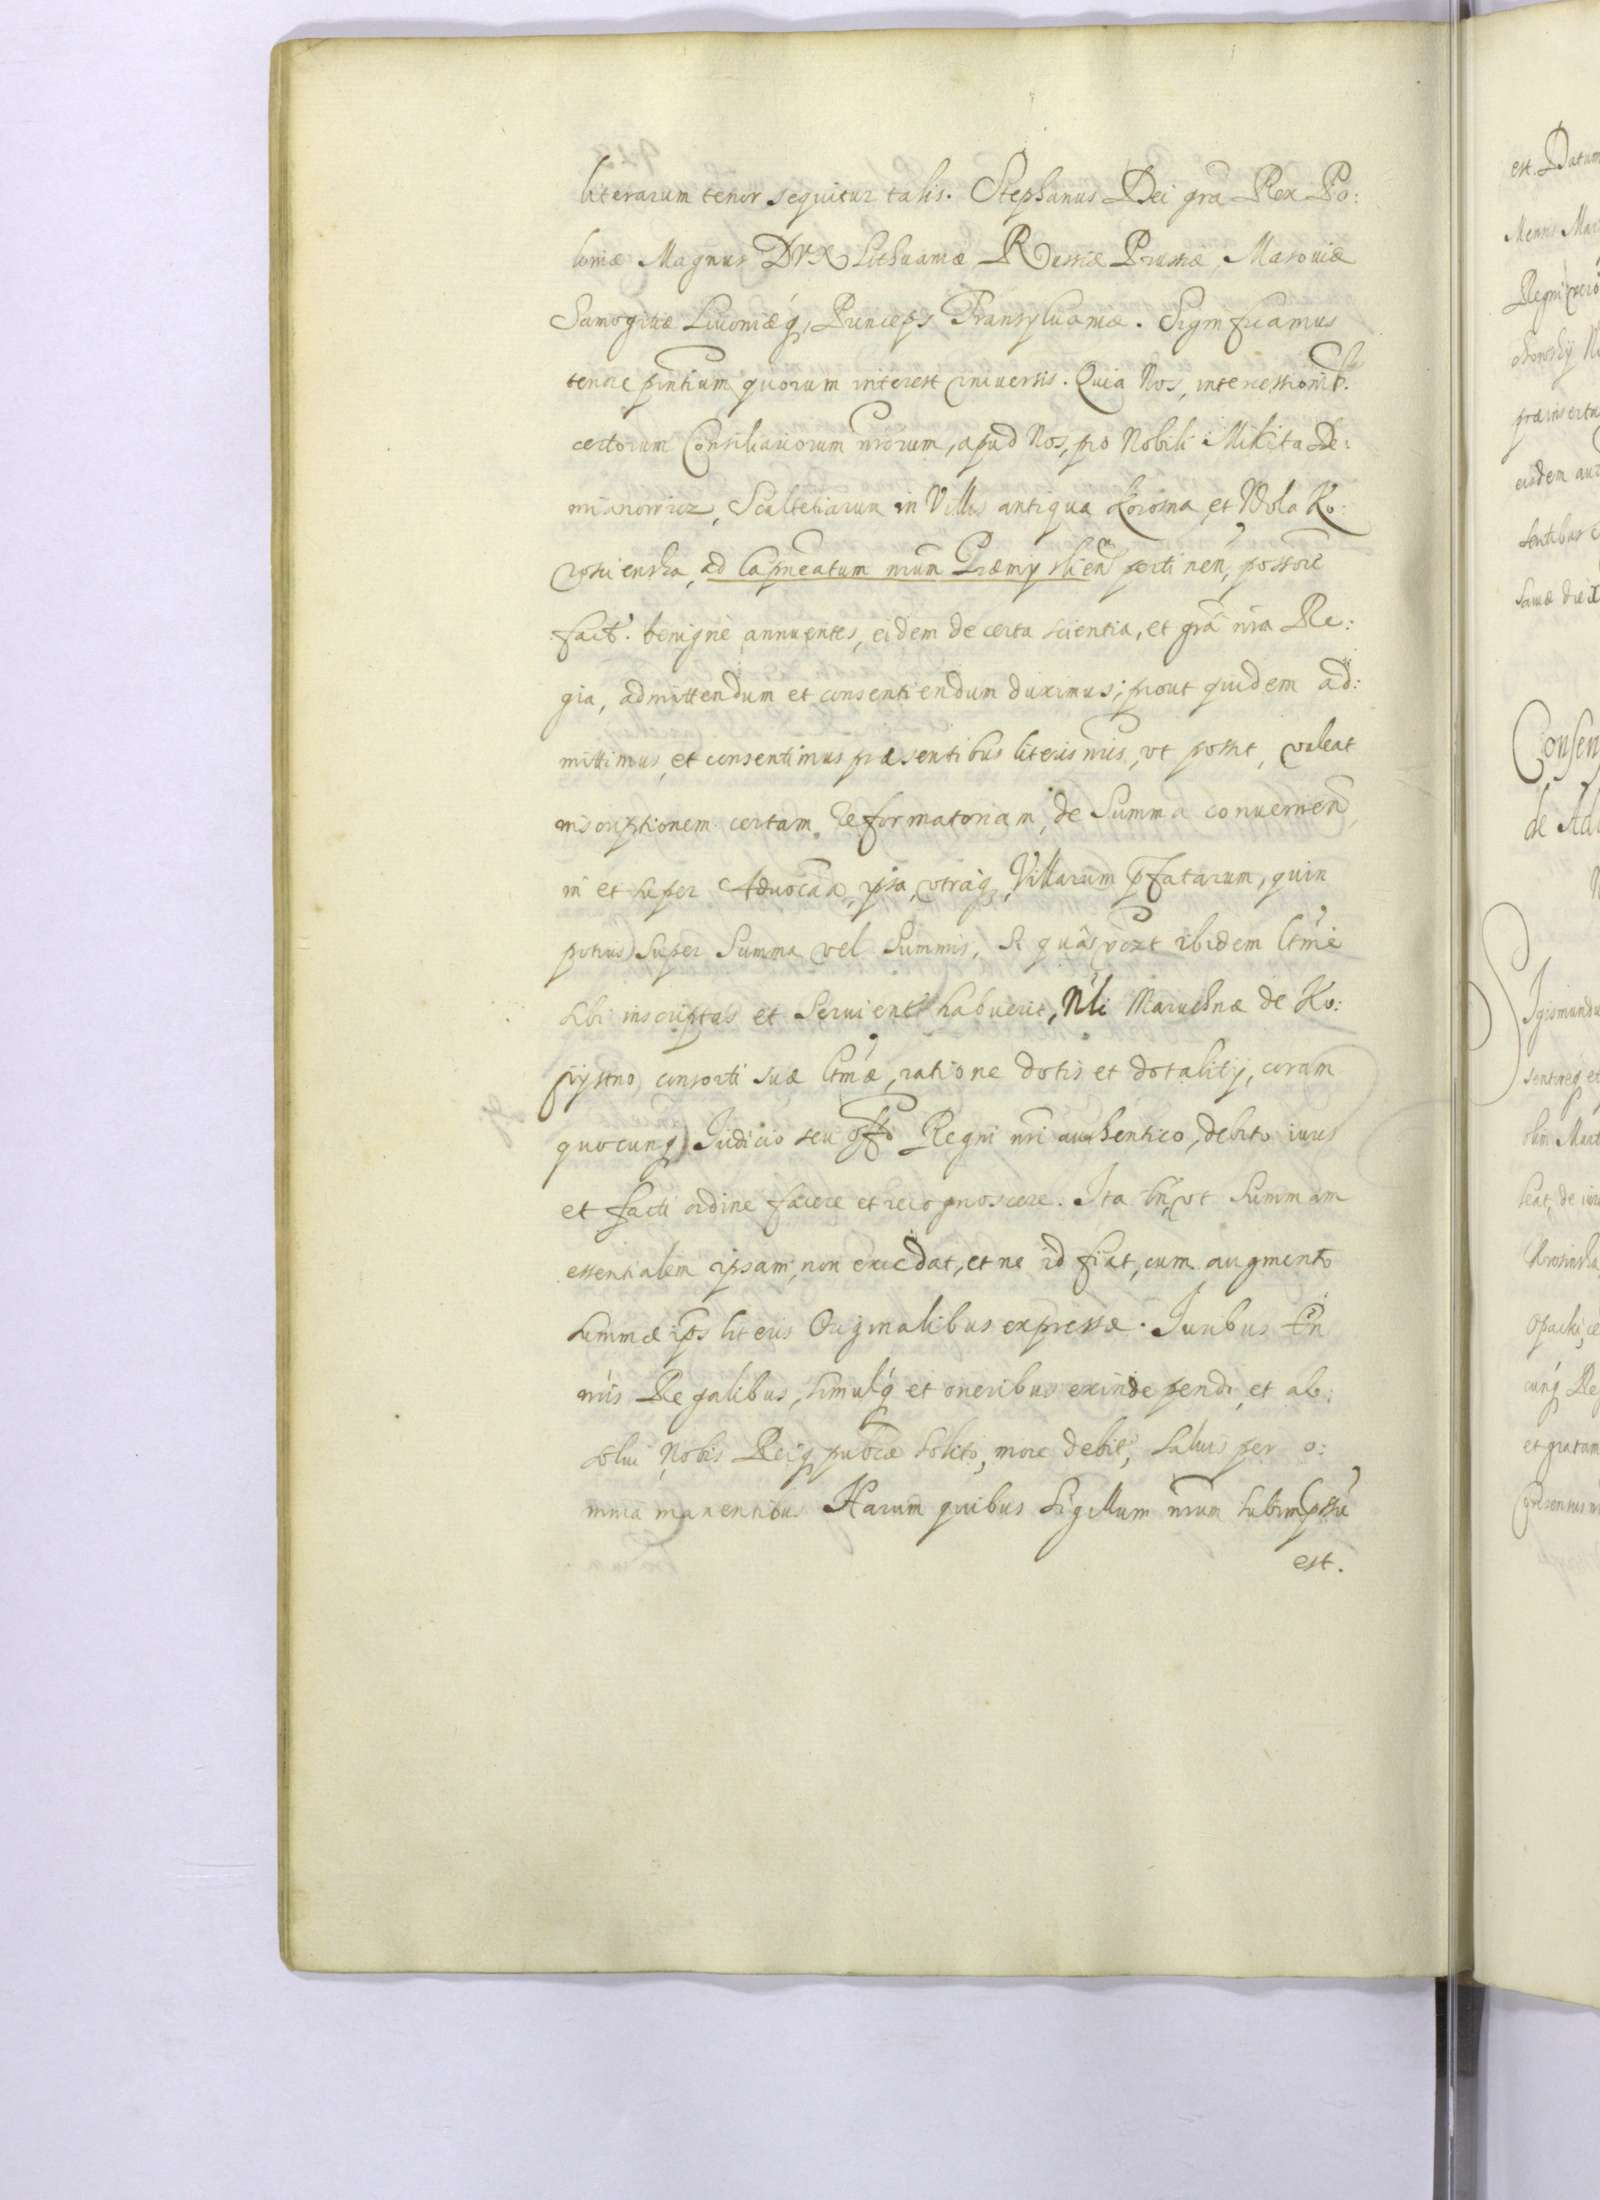 literarum tenor sequitur talis. Stephanus Dei gra Rex Po:
loniæ Magnus DVX Lithuaniæ Russiæ Prussiæ, Masoviæ
Samogitiæ Liuoniæq, Princeps Transyluaniæ. Significamus
tenore pntium quorum interest vniuersis. Quia Nos, intercessionib.
certorum Consiliariorum nrorum, apud Nos, pro Nobili Mikita De:
mianowicz, Scultetiarum in Villis antiqua Korosna et Wola Ko:
roscienska, ad Capneatum nrum Præmyslien pertinen, possore
fact. benigne annuentes, eidem de certa scientia, et gra nra Re:
gia, admittendum et consentiendum duximus; prout quidem ad:
mittimus, et consentimus præsentibus literis nris, vt possit, valeat
inscriptionem certam reformatoriam, de Summa conuenien,
in et super Aduocaa, ipsa, vtraq, Villarum pfatarum, quin
potius super Summa vel Summis, si quas ibidem ltme
sibi inscriptas et Seruient habuerit, Nli Maruchnæ de Ko:
pystno, consorti suæ ltmæ, ratione dotis et dotalitij, coram
quocunq Iudicio seu offo Regni nri authentico, debito iuris
et facti ordine facere et recognoscere. Ita tn, vt Summam
essentialem ipsam, non excedat, et ne id fiat, cum augmento
Summæ ips literis Originalibus expressæ. Iuribus tn
nris Regalibus, simulq et oneribus exinde pendi, et ab:
solui Nobis Reiq publicæ solito, more debit, saluis per o:
mnia manentibus Harum quibus Sigillum nrum subimpssu
est.
est. Datum
Mensis Mar
Regni
præinserta
eisdem aut
sentibus
Consen
de Ad
Sigismundu
sentireq et
olim Mart
leat, de iur
Opacki, ce
cunq Re
et gratam